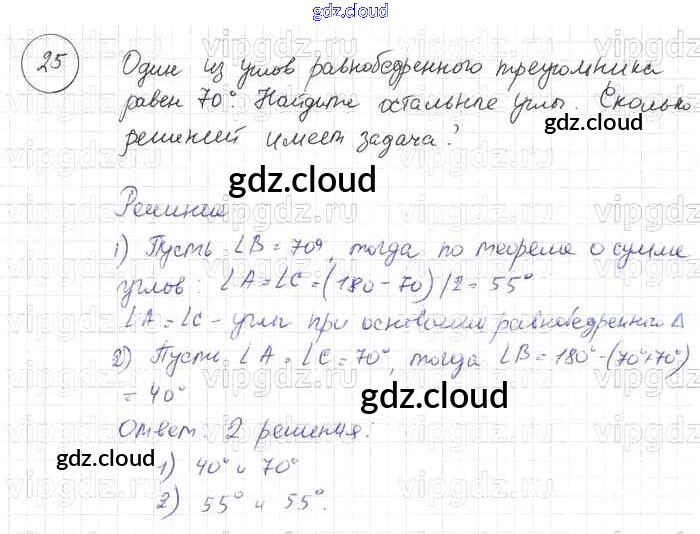 gdz.cloud
25 Один из углов равнобедренного треугольника
равен 70°. Найдите остальные углы. Сколько
gdz.cloud
решений имеет задача?
gdz.cloud
Решение
1) Пусть ∠B = 70°, тогда по теореме о сумме
углов: ∠A = ∠C = (180 - 70)/2 = 55°
∠A = ∠C - углы при основании равнобедренного Δ
2) Пусть ∠A = ∠C = 70°, тогда ∠B = 180° - (70°+70°)
= 40°
gdz.cloud
Ответ: 2 решения:
gdz.cloud
1) 40° и 70°
2) 55° и 55°.
gdz.cloud